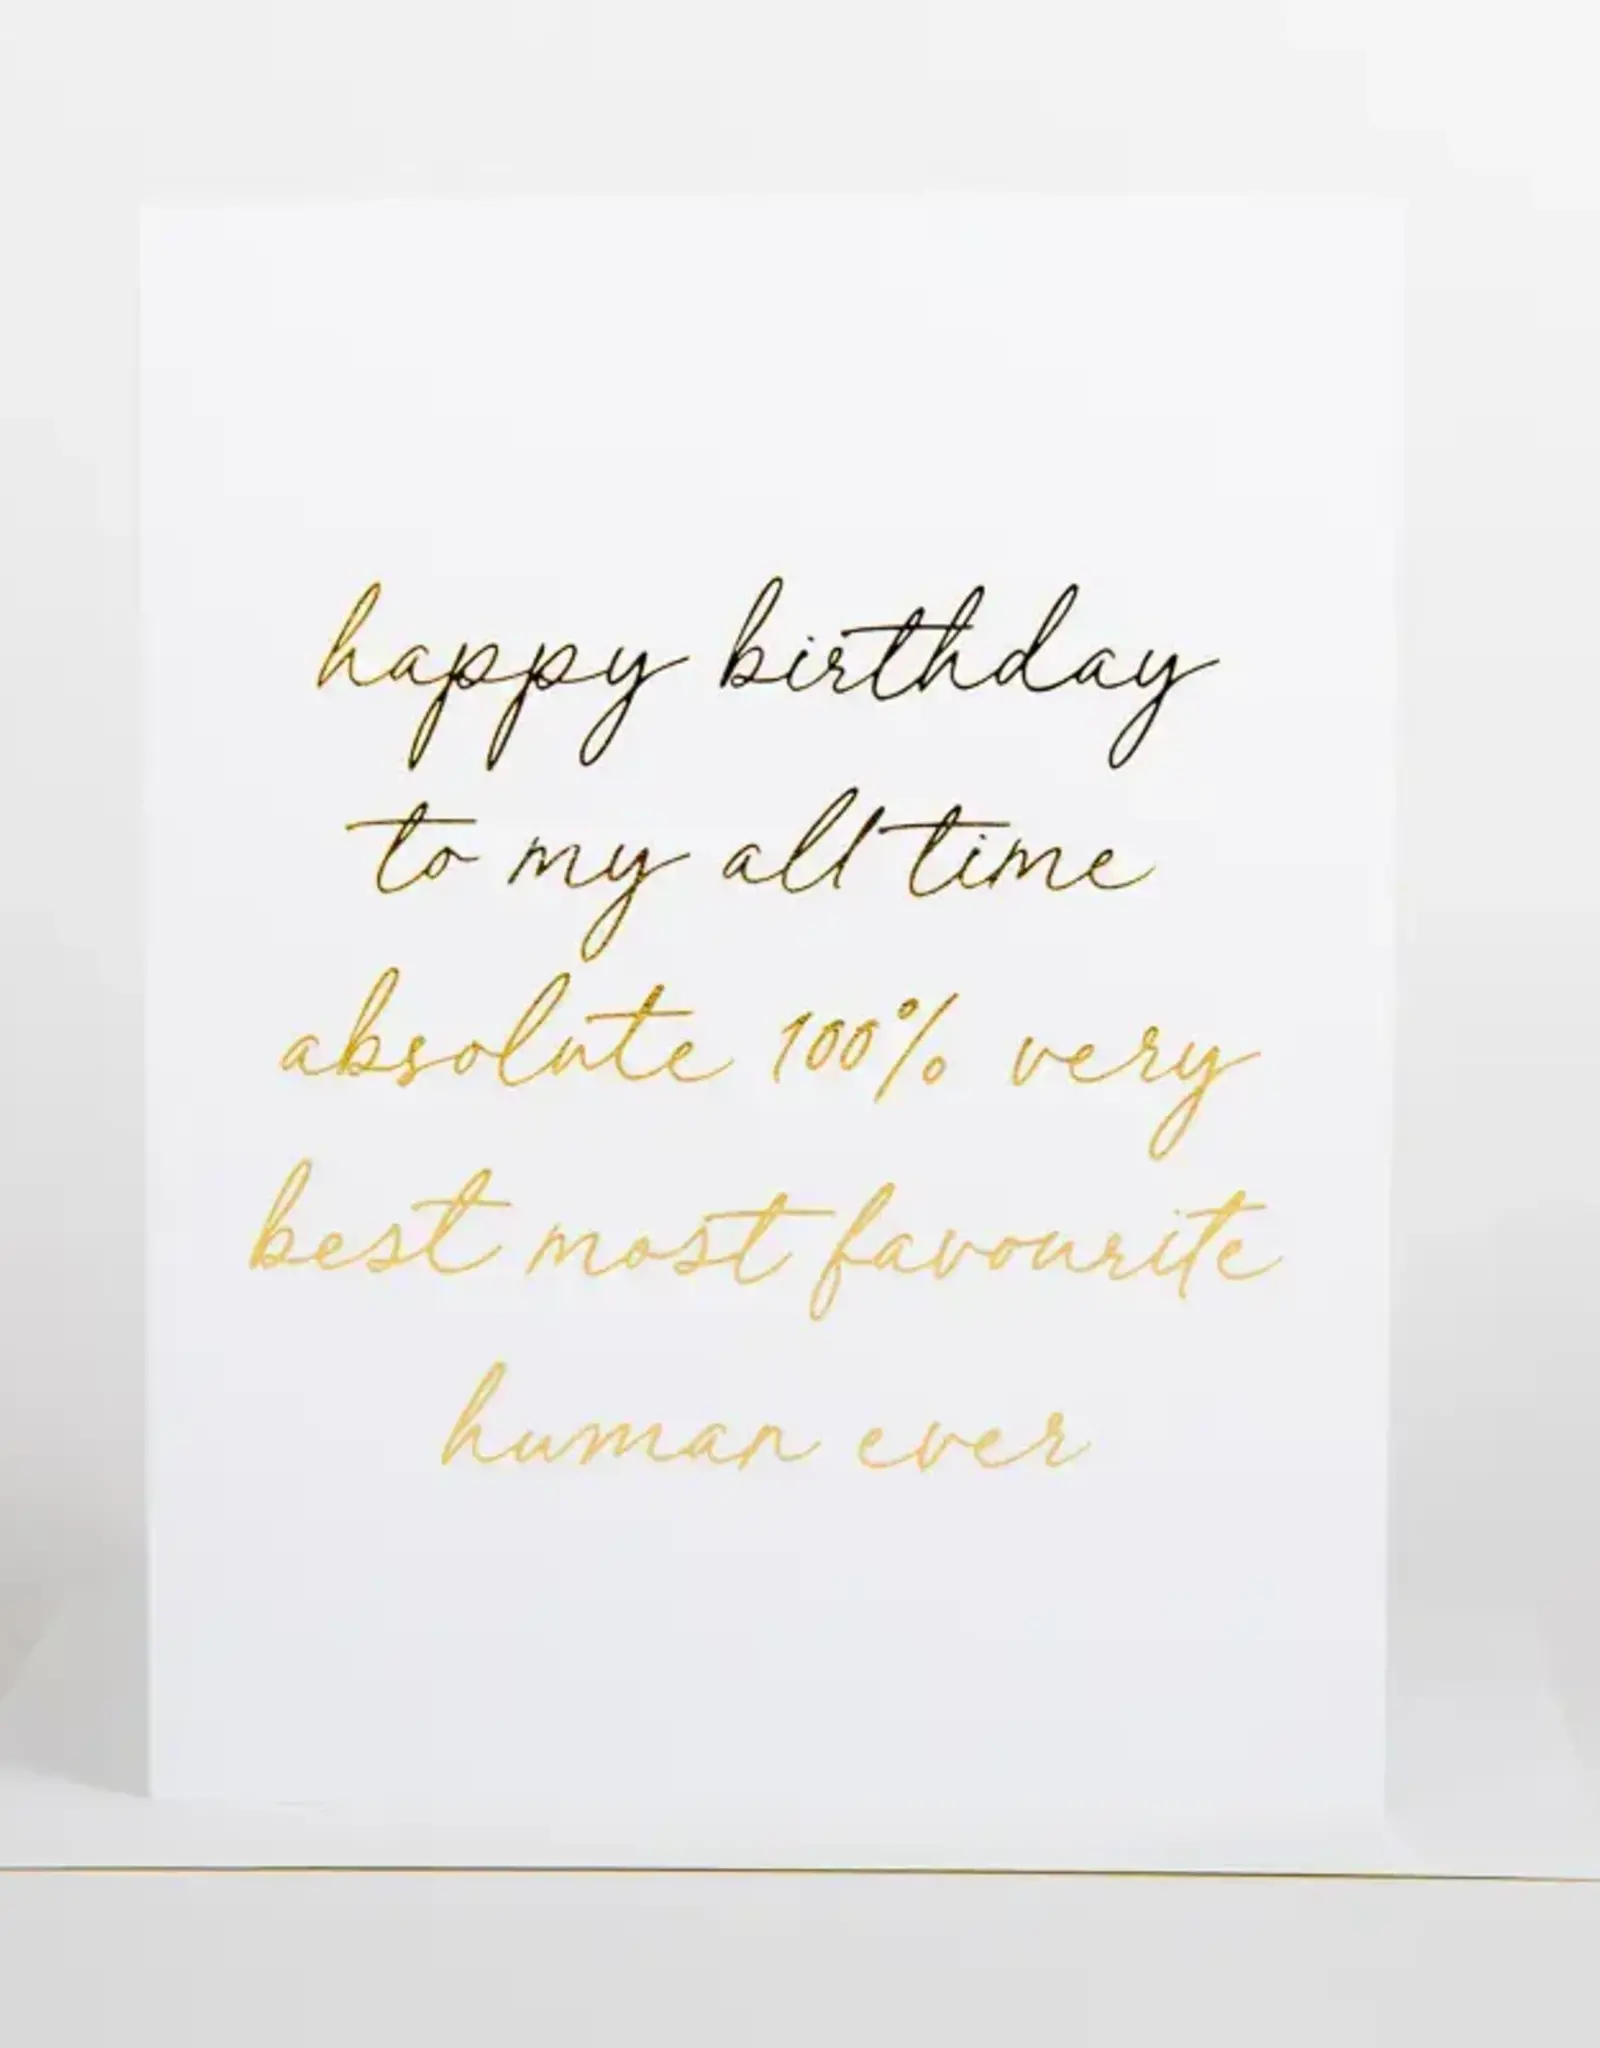 happy birthday
to my all time
absolute 100% very
best most favourite
human ever